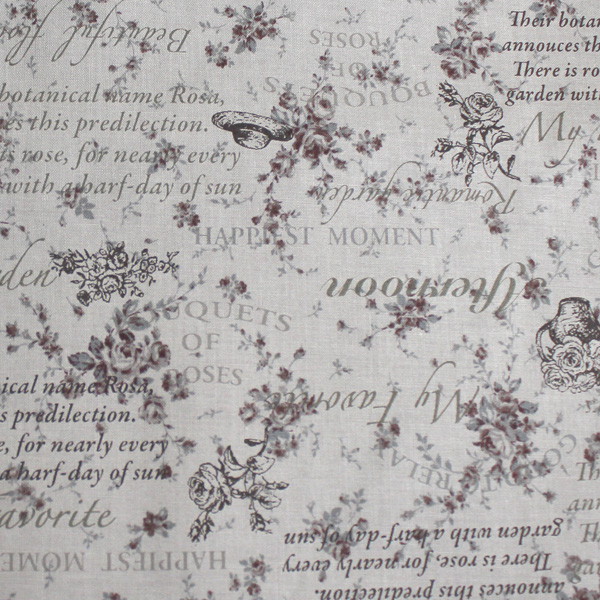 Beautiful flo
ROSES
OF
BOUQUETS
Their botan
annouces th
There is ro
garden with
My
botanical name Rosa,
es this predilection.
is rose, for nearly every
with a harf-day of sun
Romantic garden
HAPPIEST MOMENT
den
Afternoon
OUQUETS
OF
ROSES
My Favorite
ical name Rosa,
s predilection.
e, for nearly every
a harf-day of sun
TO RELA
avorite
Th
ann
Th
HAPPIEST MOME
annouces this predilection.
There is rose, for nearly every
garden with a harf-day of sun